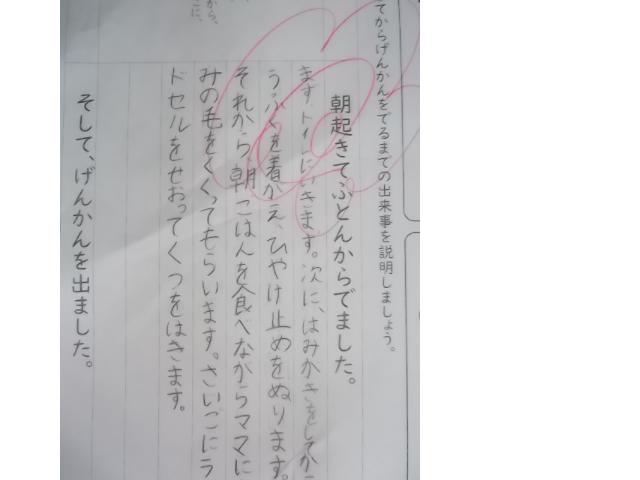 てからげんかんをでるまでの出来事を説明しましょう。
朝起きてふとんからでました。
ます、トイレにいきます。次に、はみがきをしてから
うふくを着かえ、ひやけ止めをぬります。
それから、朝ごはんを食べながらママに
みの毛をくくってもらいます。さいごにラ
ドセルをせおってくつをはきます。
そして、げんかんを出ました。
から、
こに、